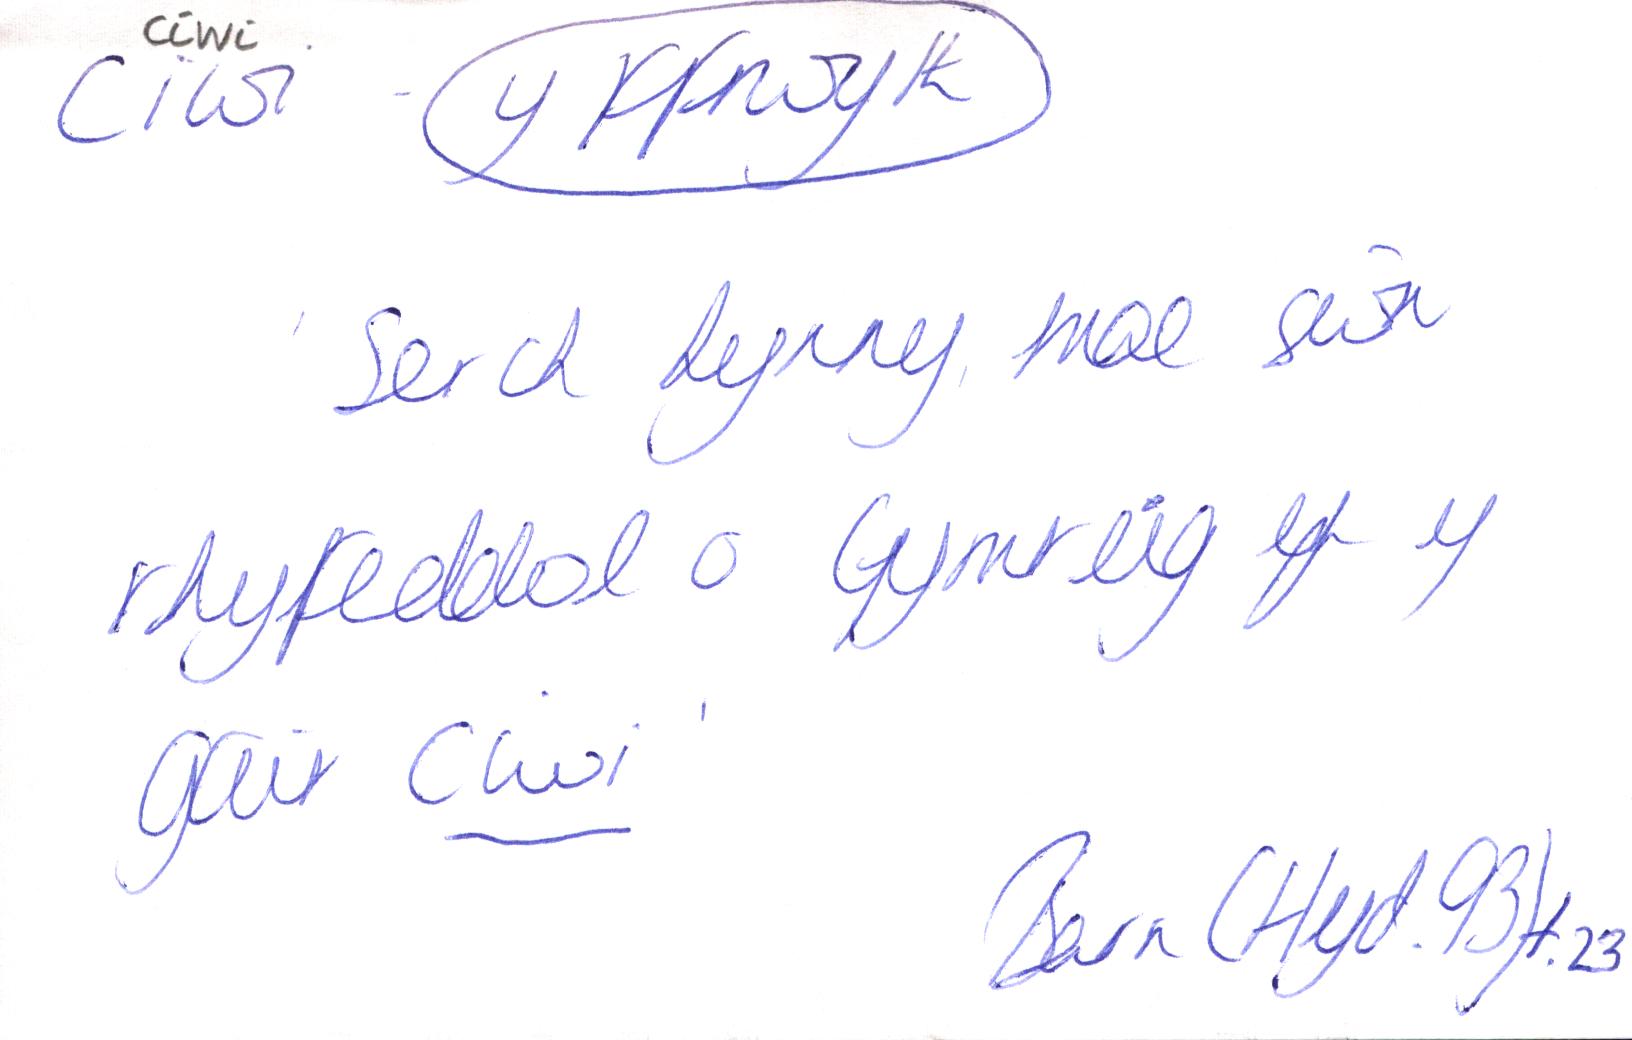 ciwi
ciwi - y ffrwyth
'Serch hynny, mae sŵn
rhyfeddol o Gymreig yn y
gair ciwi'
Barn (Hyd. 93) t. 23